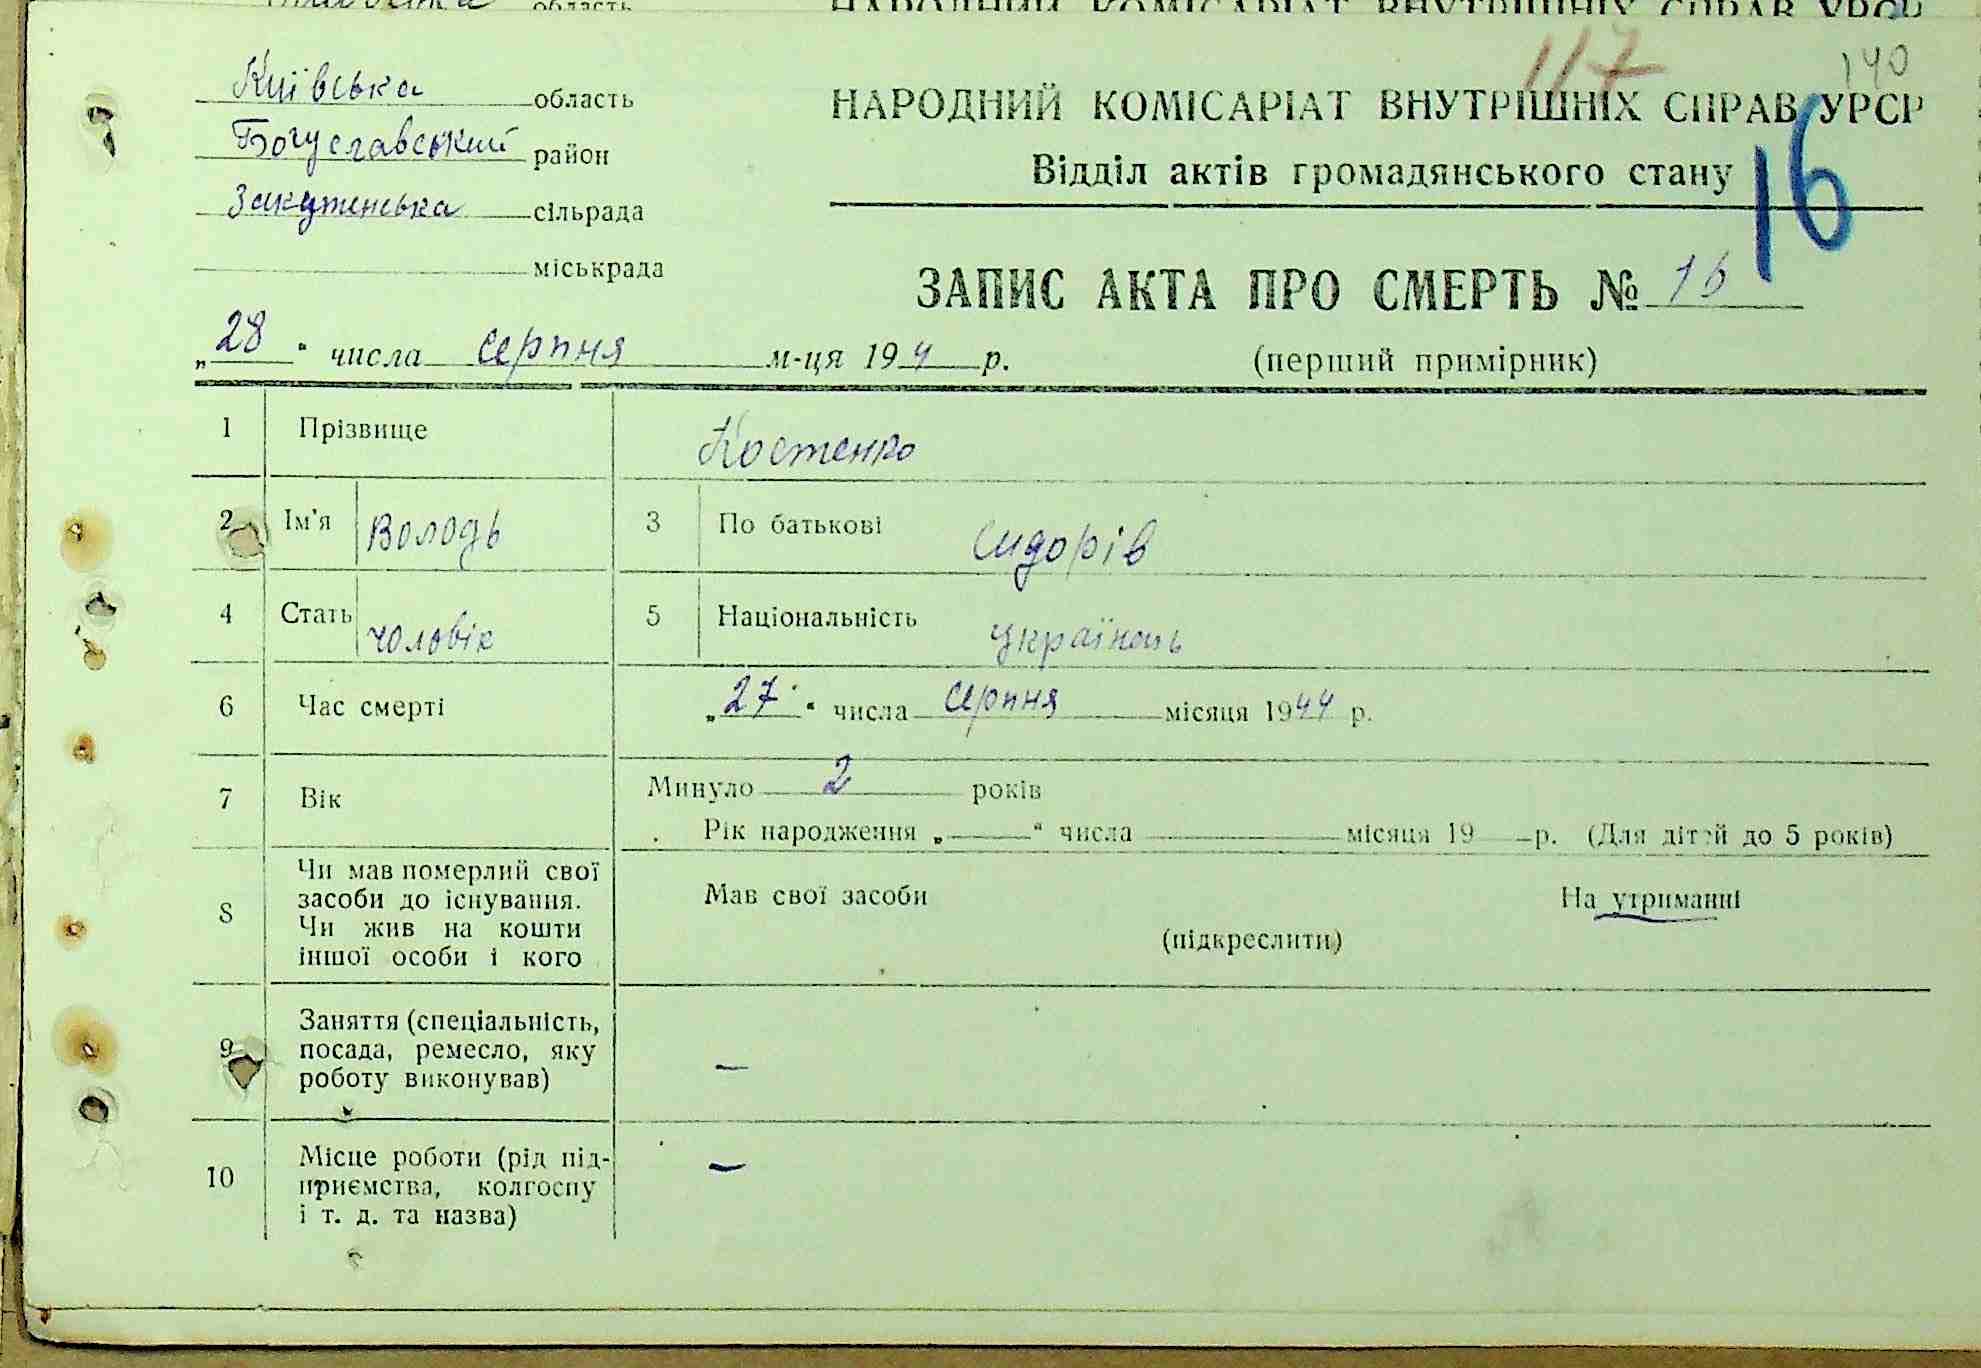 область
НАРОДНИЙ КОМІСАРІАТ ВНУТРІШНІХ СПРАВ УРСР
117
140
Київська область
НАРОДНИЙ КОМІСАРІАТ ВНУТРІШНІХ СПРАВ УРСР
Богуславський район
Відділ актів громадянського стану
16
Закутенська сільрада
міськрада
ЗАПИС АКТА ПРО СМЕРТЬ № 16
„28“ числа серпня м-ця 194 р.
(перший примірник)
1 Прізвище Костенко
2 Ім'я Володь 3 По батькові Сидорів
4 Стать чоловік 5 Національність українець
6 Час смерті „27“ числа серпня місяця 1944 р.
7 Вік Минуло 2 років
Рік народження „ “ числа місяця 19 р. (Для дітей до 5 років)
8 Чи мав померлий свої
засоби до існування.
Чи жив на кошти
іншої особи і кого
Мав свої засоби На утриманні
(підкреслити)
9 Заняття (спеціальність,
посада, ремесло, яку
роботу виконував)
—
10 Місце роботи (рід під-
приємства, колгоспу
і т. д. та назва)
—